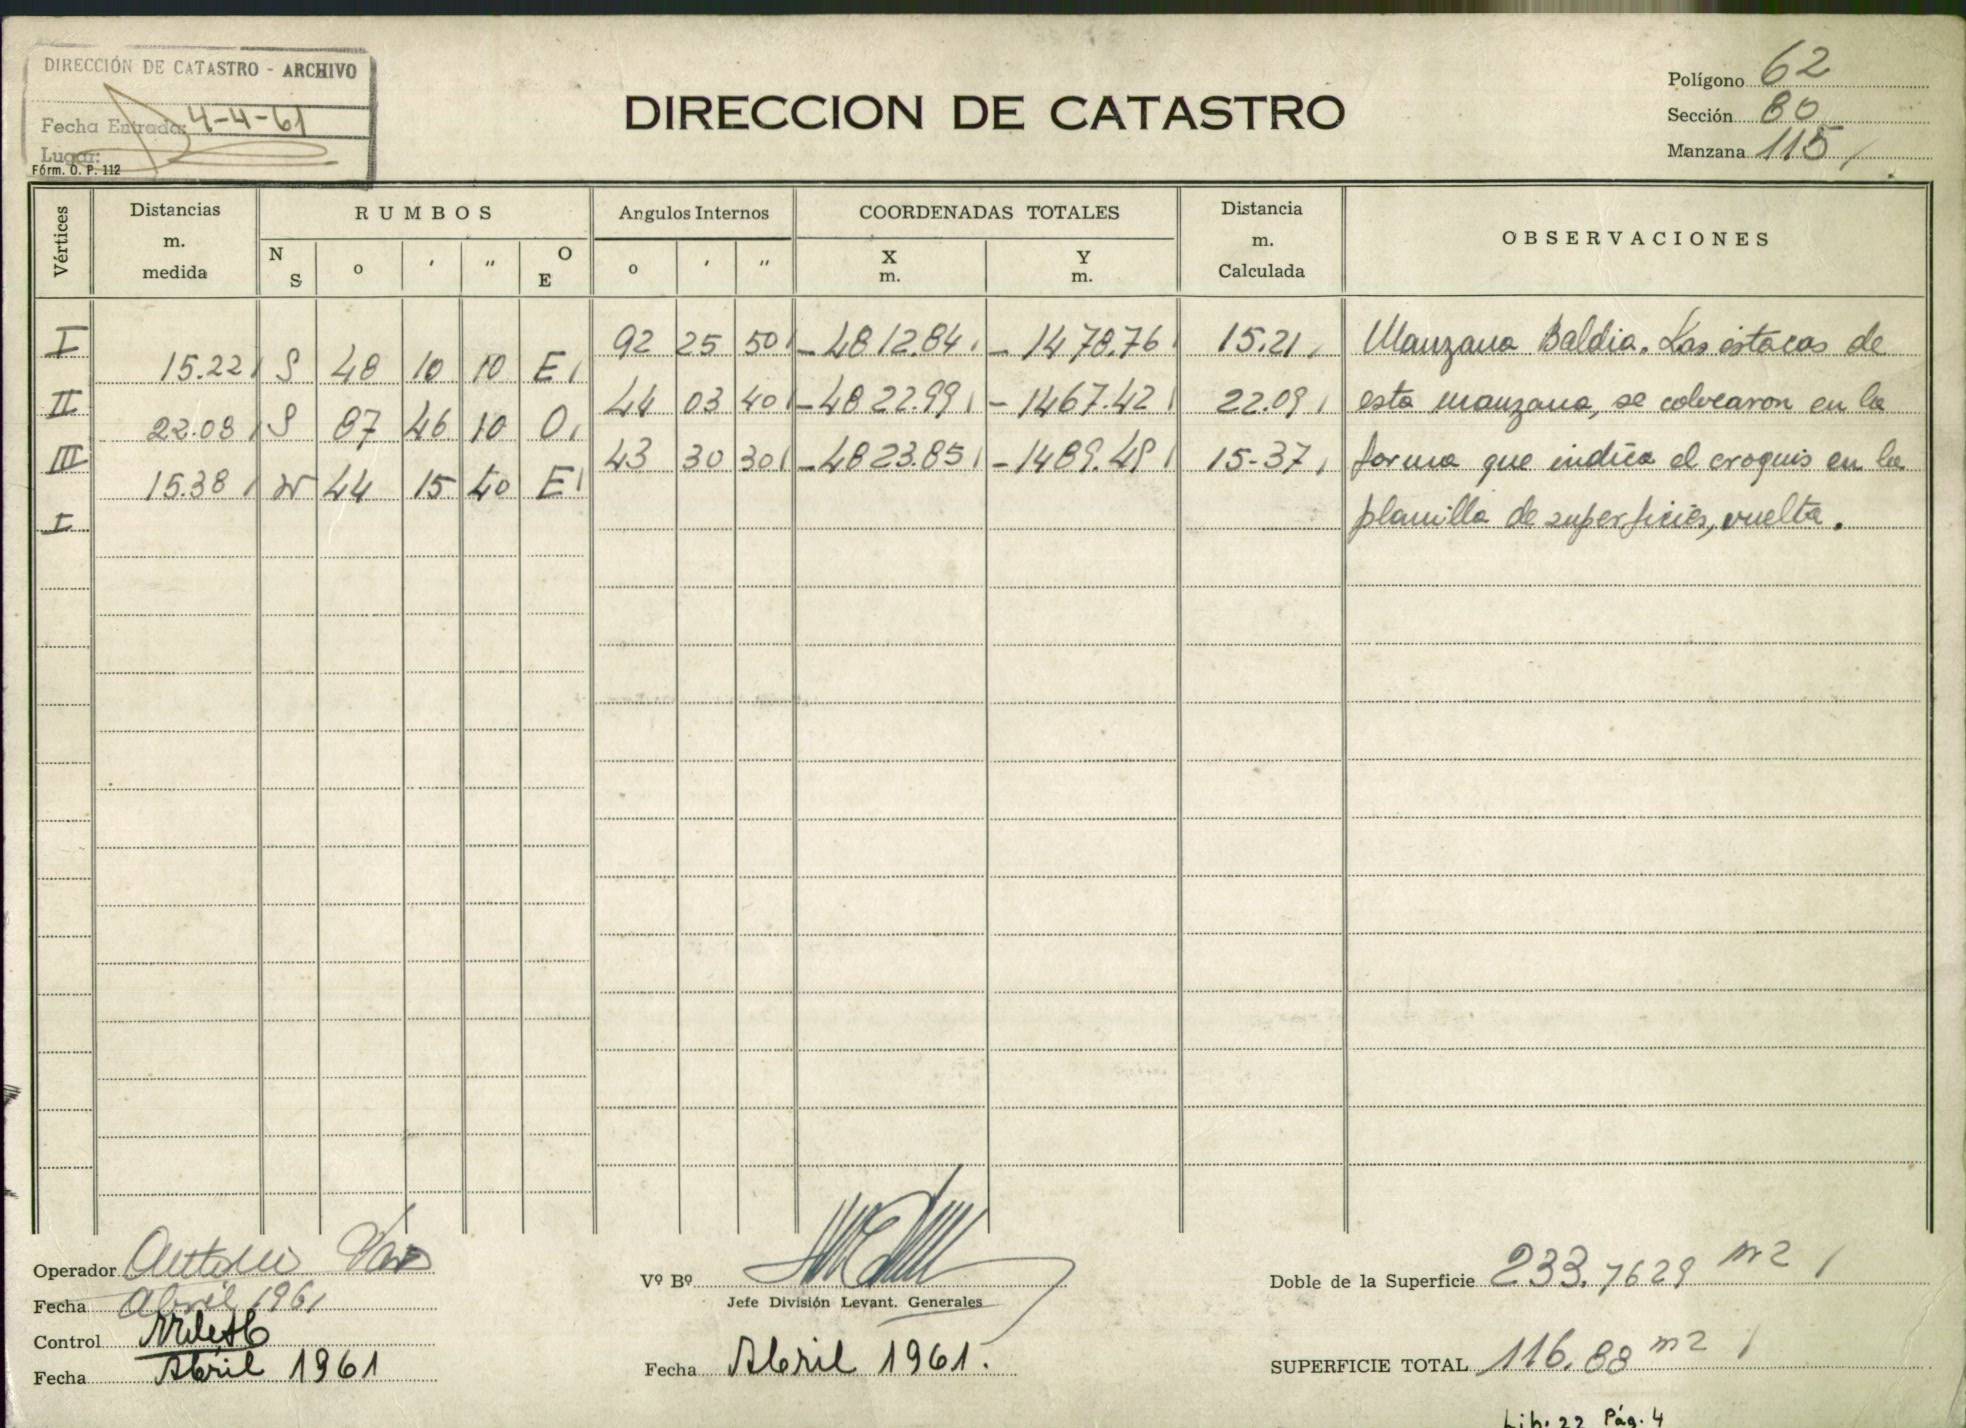 DIRECCIÓN DE CATASTRO - ARCHIVO
Fecha Entrada: 4-4-61
Lugar:
Fórm. O. P. 112
DIRECCION DE CATASTRO
Polígono 62
Sección 80
Manzana 115
Vértices
Distancias m. medida
RUMBOS
N S
o
'
"
O E
Angulos Internos
o
'
"
COORDENADAS TOTALES
X m.
Y m.
Distancia m. Calculada
OBSERVACIONES
I 92 25 50 -4812.84 -1478.76 15.21 Manzana Baldia. Las estacas de
15.22 S 48 10 10 E
II 44 03 40 -4822.99 -1467.42 22.09 esta manzana, se colocaron en la
22.08 S 87 46 10 O
III 43 30 30 -4823.85 -1489.49 15-37 forma que indica el croquis en la
15.38 N 44 15 40 E
I planilla de superficies, vuelta.
Operador Antonio
Fecha Abril 1961
Control
Fecha Abril 1961
Vº Bº
Jefe División Levant. Generales
Fecha Abril 1961.
Doble de la Superficie 233.7629 m2
SUPERFICIE TOTAL 116.88 m2
Lib. 22 Pág. 4